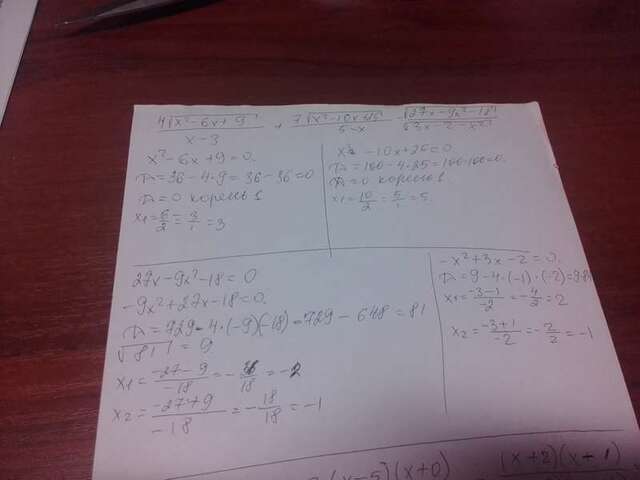 4√x²-6x+9 / x-3 + 7√x²-10x+25 / 5-x √27x-9x²-18 / √3x-2-x²
x²-6x+9=0.
D=36-4·9=36-36=0
D=0 корень 1
x1=6/2=3/1=3
x² -10x+25=0
D=100-4·25=100-100=0.
D=0 корень 1
x1=10/2=5/1=5.
27x-9x²-18=0
-9x²+27x-18=0.
D=729-4·(-9)(-18)=729-648=81
√81=9
x1=-27-9/-18=- /18=-2
x2=-27+9/-18=-18/18=-1
-x²+3x-2=0.
D=9-4·(-1)·(-2)=9-8=
x1=-3-1/-2=-4/2=2
x2=-3+1/-2=-2/2=-1
(x-5)(x+0) (x+2)(x+1)